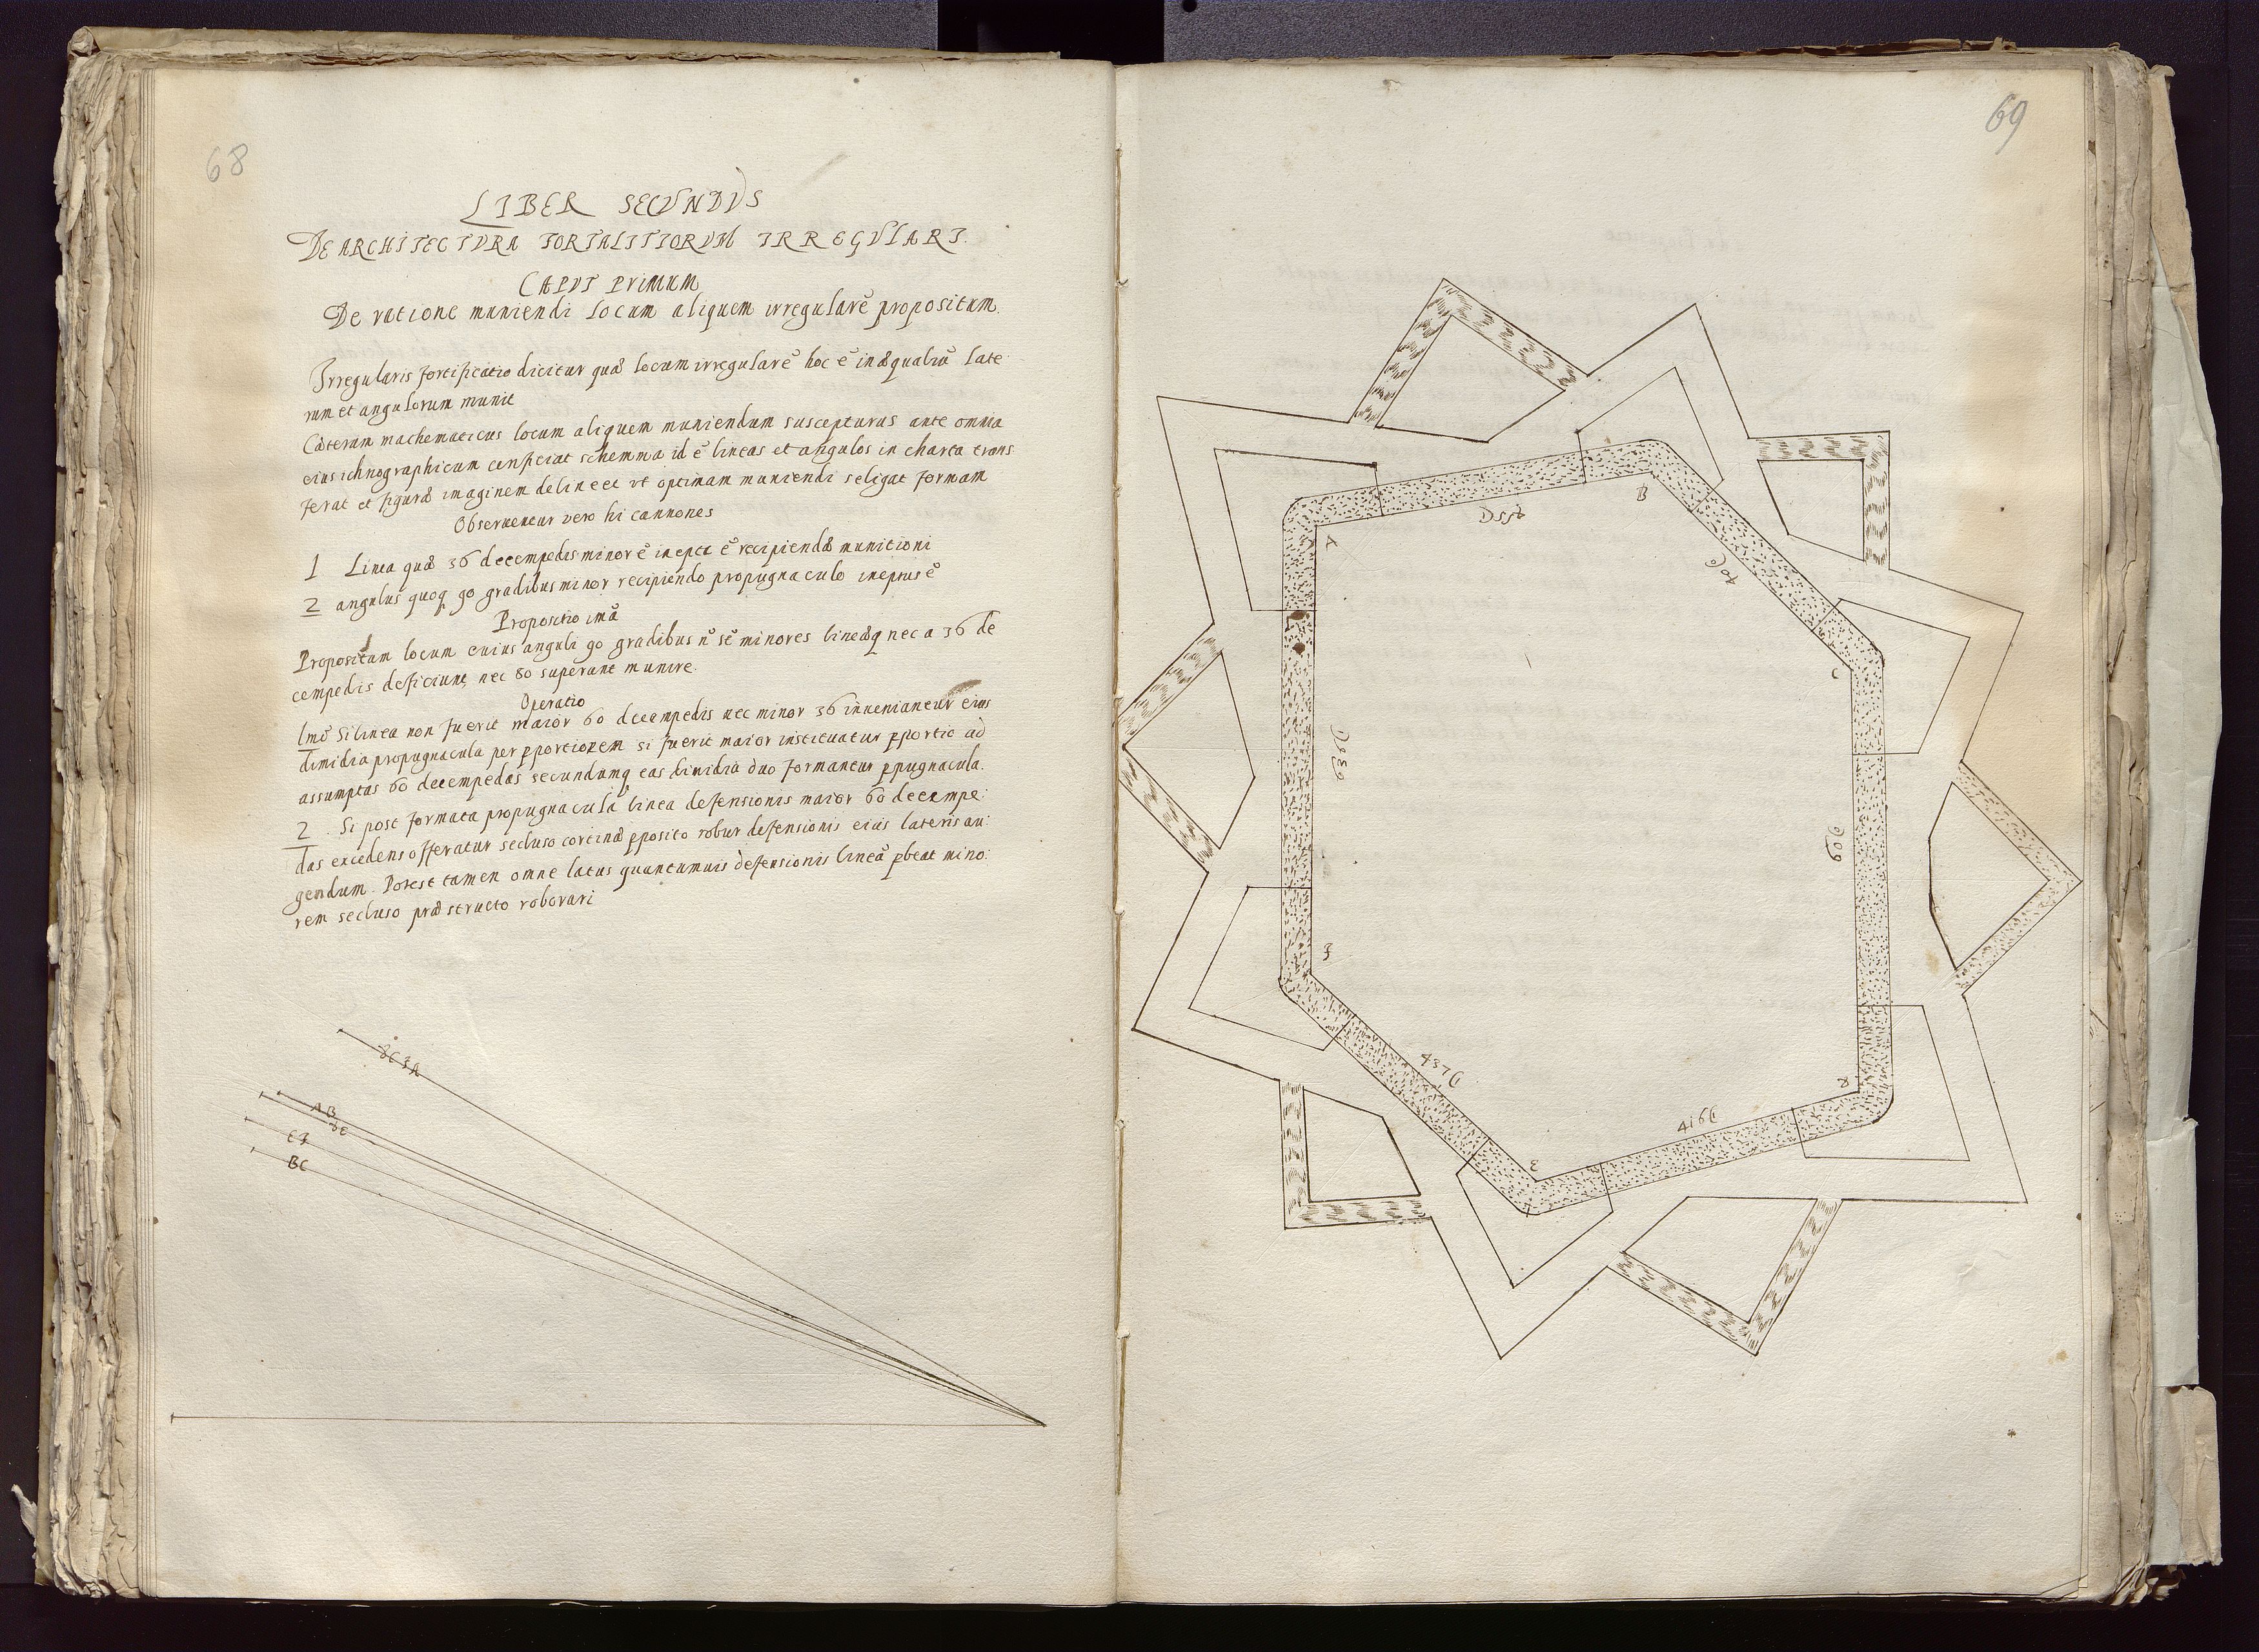 68
LIBER SECVNDVS
DE ARCHITECTVRA FORTALITIORVM IRREGVLARI.
CAPVT PRIMUM
De ratione muniendi locum aliquem irregularē propositum.
Irregularis fortificatio dicitur quæ locum irregularē hoc ē inæqualiū late
rum et angulorum munit
Cæterum mathematicus locum aliquem muniendum suscepturus ante omnia
eius ichnographicum conficiat schemma id ē lineas et angulos in charta trans
ferat et figuræ imaginem delineet vt optimam muniendi seligat formam
Obseruentur vero hi cannones
1 Linea quæ 36 decempedis minor ē inepta ē recipiendæ munitioni
2 angulus quoq 90 gradibus minor recipiendo propugnaculo ineptus ē
Propositio imā
Propositum locum cuius anguli 90 gradibus nō sē minores lineæq nec a 36 de
cempedis deficiunt nec 80 superant munire.
Operatio
Imō Si linea non fuerit maior 60 decempedis nec minor 36 inueniantur eius
dimidia propugnacula per pportionem si fuerit maior instituatur pportio ad
assumptas 60 decempedas secundumq eas dimidia duo formantur ppugnacula.
2. Si post formata propugnacula linea defensionis maior 60 decempe:
das excedens offeratur secluso cortinæ pposito robur defensionis eius lateris au:
gendum. Potest tamen omne latus quantumuis defensionis lineā pbeat mino:
rem secluso præstructo roborari
AB
EF
BC
69
A
B
C
E
F
40
60
437
416